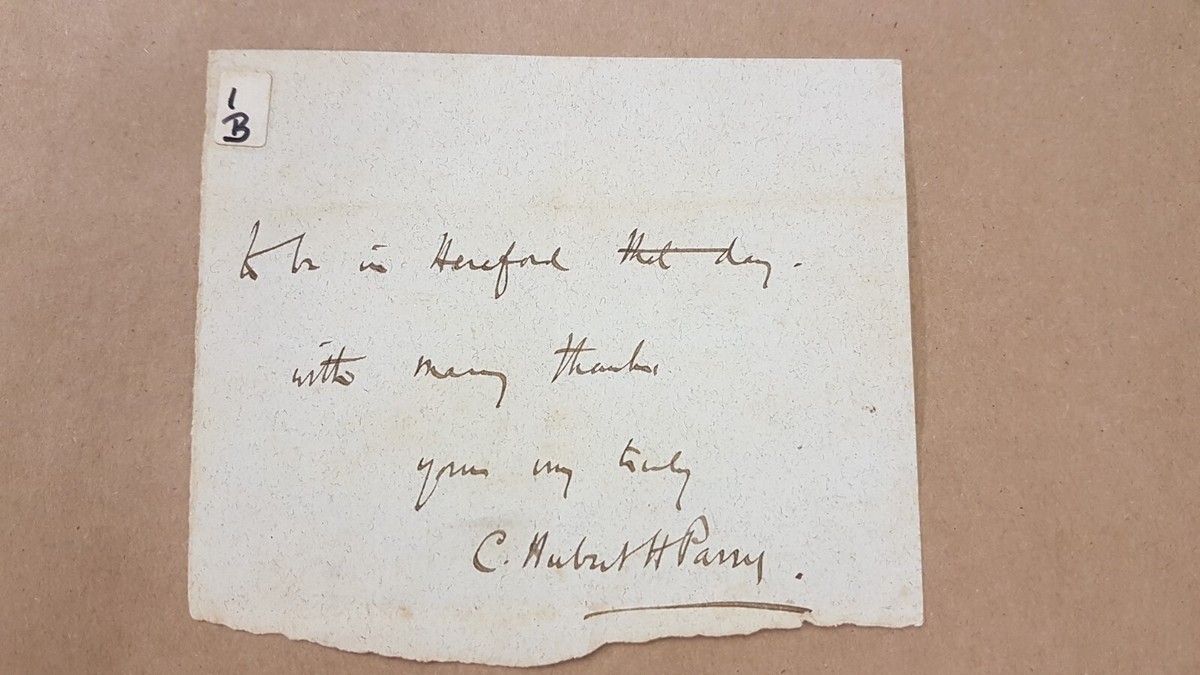 1
B
to be in Hereford that day.
with many thanks
yours very truly
C. Hubert H Parry.